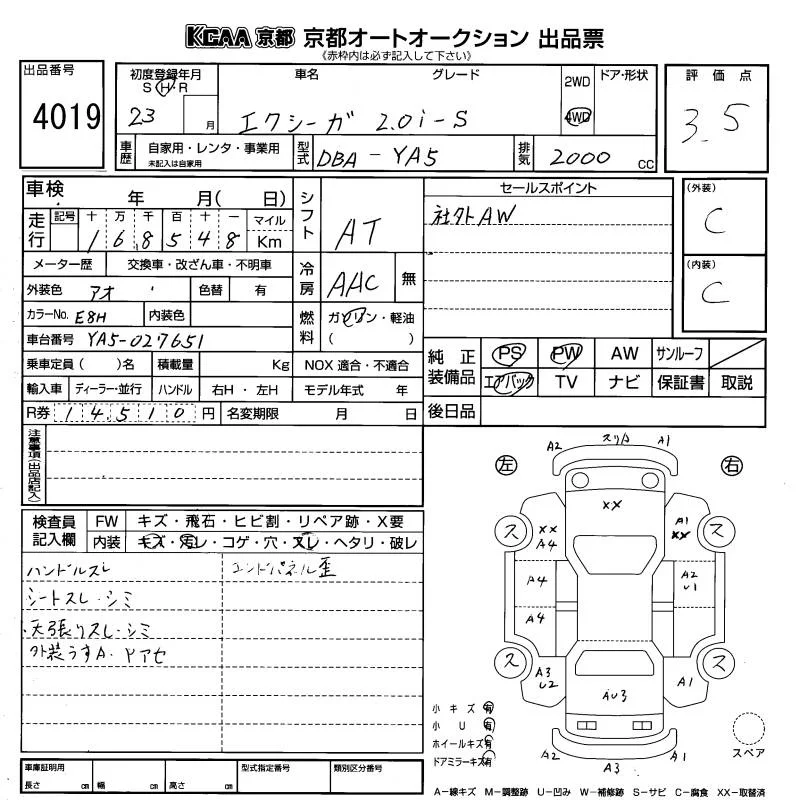 KCAA 京都 京都オートオークション 出品票
《赤枠内は必ず記入して下さい》
出品番号
4019
初度登録年月
S H R
23 月
車名 グレード
エクシーガ 2.0i-S
2WD
4WD
ドア・形状
評価点
3.5
車歴
自家用・レンタ・事業用
未記入は自家用
型式
DBA-YA5
排気
2000 CC
車検 年 月( 日)
走行
記号 十 万 千 百 十 一 マイル
1 6 8 5 4 8 Km
メーター歴 交換車・改ざん車・不明車
外装色 アオ 色替 有
カラーNo. E8H 内装色
車台番号 YA5-027651
乗車定員( )名 積載量 Kg
輸入車 ディーラー・並行 ハンドル 右H・左H
R券 14,510 円 名変期限 月 日
シフト
AT
冷房
AAC 無
燃料
ガソリン・軽油
( )
NOX 適合・不適合
モデル年式 年
セールスポイント
社外AW
(外装)
C
(内装)
C
純正装備品
PS PW AW サンルーフ
エアバック TV ナビ 保証書 取説
後日品
注意事項(出品店記入)
検査員記入欄
FW キズ・飛石・ヒビ割・リペア跡・X要
内装 キズ・汚レ・コゲ・穴・スレ・ヘタリ・破レ
ハンドルスレ
シートスレ・シミ
天張りスレ・シミ
外装うすA・Yアセ
エンドパネル歪
車庫証明用
長さ cm 幅 cm 高さ cm
型式指定番号
類別区分番号
左
右
A2 スリA A1
XX
ス ス
XX
A4
A1
XX
A4
A2
U1
A4
ス ス
A3
U2
A1
AU3
A2 A3 A1
小キズ 有
小U 有
ホイールキズ 有
ドアミラーキズ 有
スペア
A-線キズ M-調整跡 U-凹み W-補修跡 S-サビ C-腐食 XX-取替済